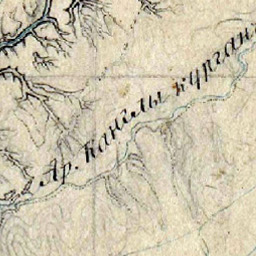 Ар. канглы курган